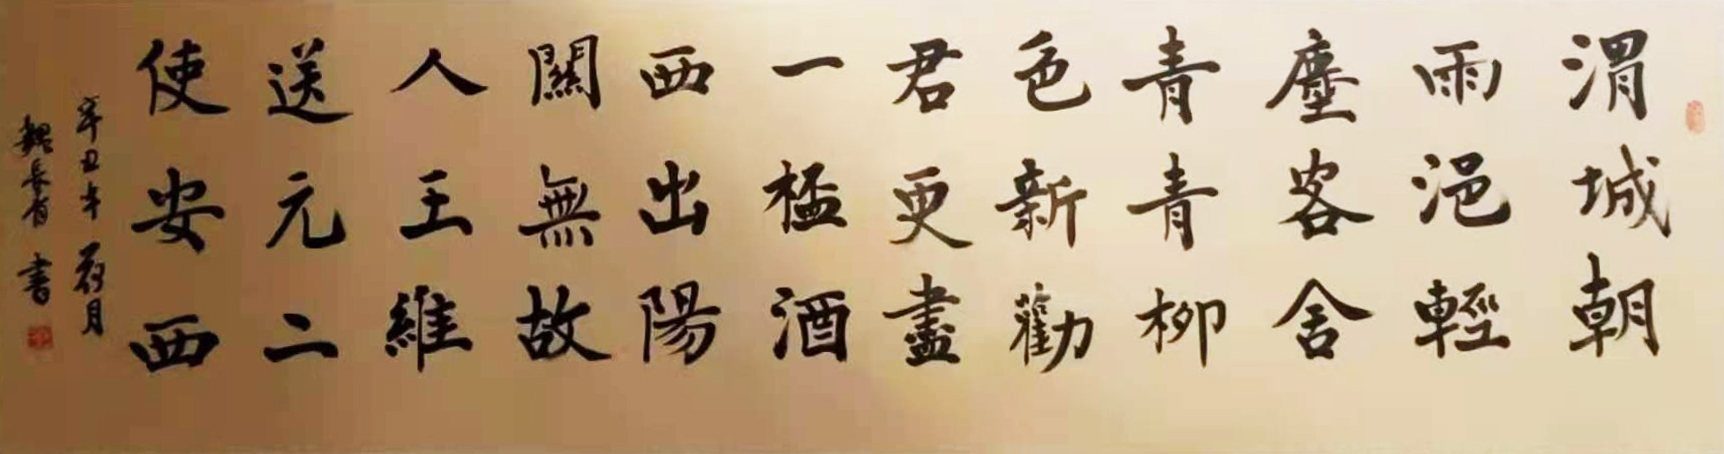 渭城朝
雨浥輕
塵客舍
青青柳
色新勸
君更盡
一杯酒
西出陽
關無故
人王維
送元二
使安西
辛丑年 月
魏長有書